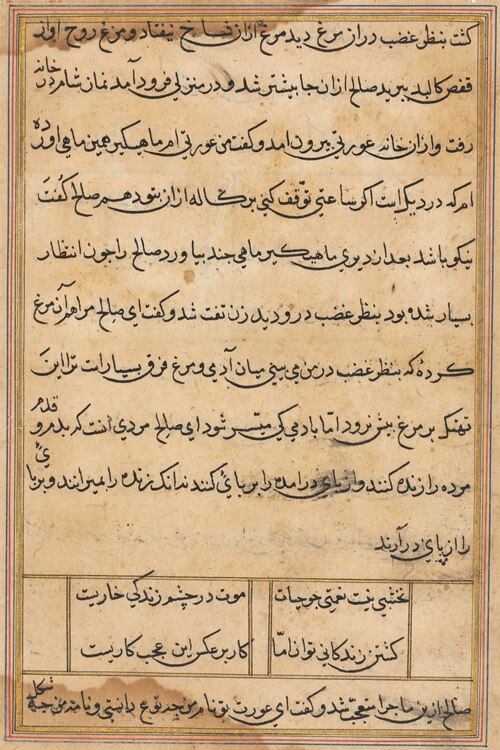 کشت بنظر غضب دران مرغ دید مرغ ازان شاخ بیفتاد و مرغ روح او از
قفص کالبد بپرید صالح ازان جا بیشتر شد و در منزلی فرود آمد نماز شام در خانه
رفت و ازان خانه عورتی بیرون امد و کفت من عورتی ام ماهیکیر همین ماهی اورده
ام که در دیک است اکر ساعتی توقف کنی پرکاله ازان بتو دهم صالح کفت
نیکو باشد بعد از دیری ماهیکیر ماهی چند بیاورد صالح را چون انتظار
بسیار شده بود بنظر غضب در و دید زن تفت شد و کفت ای صالح مرا هم آن مرغ
کردهٔ که بنظر غضب در من می بینی میان آدمی و مرغ فرق بسیار است ترا این
تهتک بر مرغ بیش نرود اما با دمی کی میسر شود ای صالح مردی انست که بدم و قدم
مرده را زنده کنند و از پای در امده را بر پای کنند نه انک زنده را بمیرانند و بر پای
را از پای در آرند
نخشبی نیت نعمتی چو حیات
موت در چشم زندکی خاریست
کشتن زندکانی توان اما
کار برعکس این عجب کاریست
صالح ازین ماجرا متعجب شد و کفت ای عورت تو نام من چه نوع دانستی و نامد من چه شکل